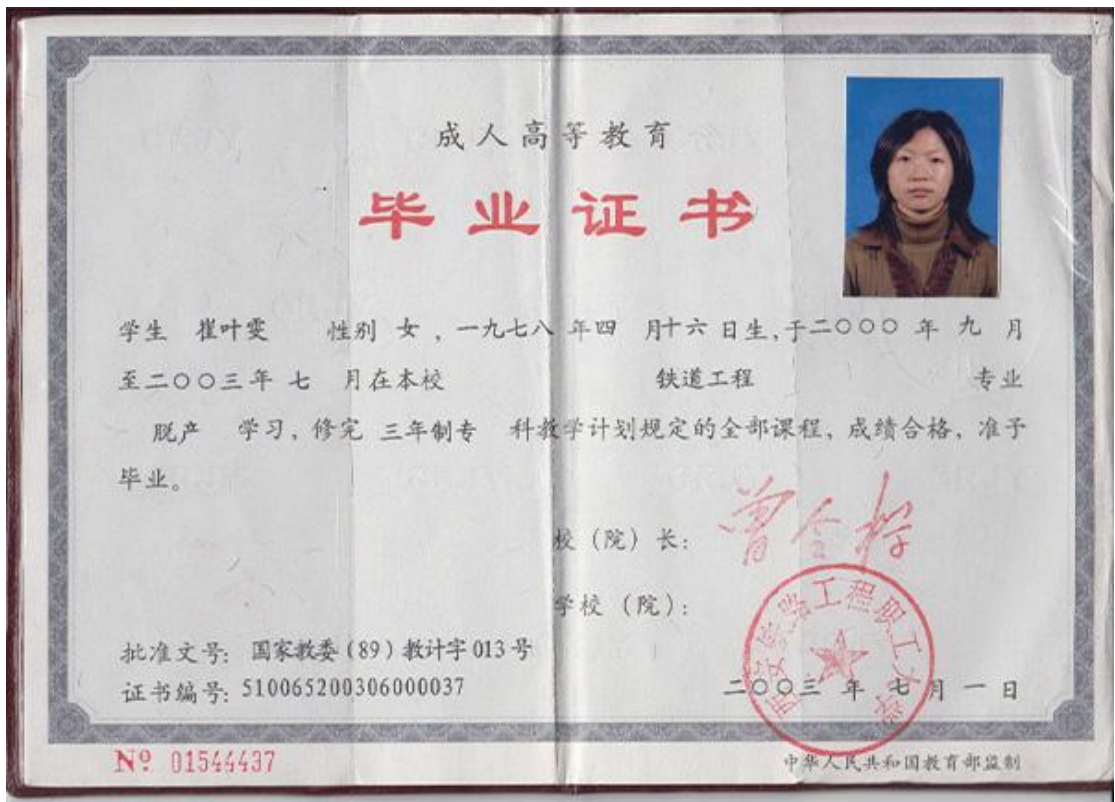 成人高等教育
毕业证书
学生 崔叶雯 性别 女 ，一九七八 年四 月十六 日生，于二○○○ 年 九 月
至二○○三年 七 月在本校 铁道工程 专业
脱产 学习，修完 三年制专 科教学计划规定的全部课程，成绩合格，准予
毕业。
校（院）长：
学校（院）：
批准文号：国家教委（89）教计字 013 号
证书编号：510065200306000037
二○○三 年 七 月 一 日
№ 01544437
中华人民共和国教育部监制